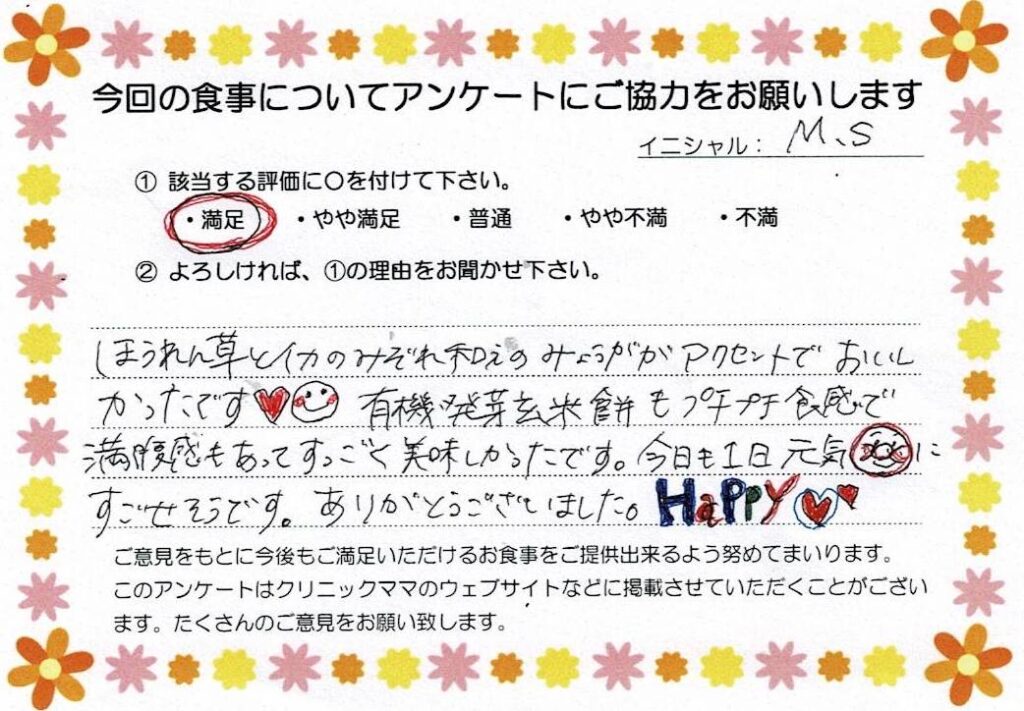 今回の食事についてアンケートにご協力をお願いします
イニシャル: M、S
① 該当する評価に〇を付けて下さい。
・満足 ・やや満足 ・普通 ・やや不満 ・不満
② よろしければ、①の理由をお聞かせ下さい。
ほうれん草とイカのみぞれ和えの みょうががアクセントで おいし
かったです 有機発芽玄米餅もプチプチ食感で
満腹感もあってすっごく美味しかったです。今日も1日元気に
すごせそうです。ありがとうございました。HaPPY
ご意見をもとに今後もご満足いただけるお食事をご提供出来るよう努めてまいります。
このアンケートはクリニックママのウェブサイトなどに掲載させていただくことがござい
ます。たくさんのご意見をお願い致します。